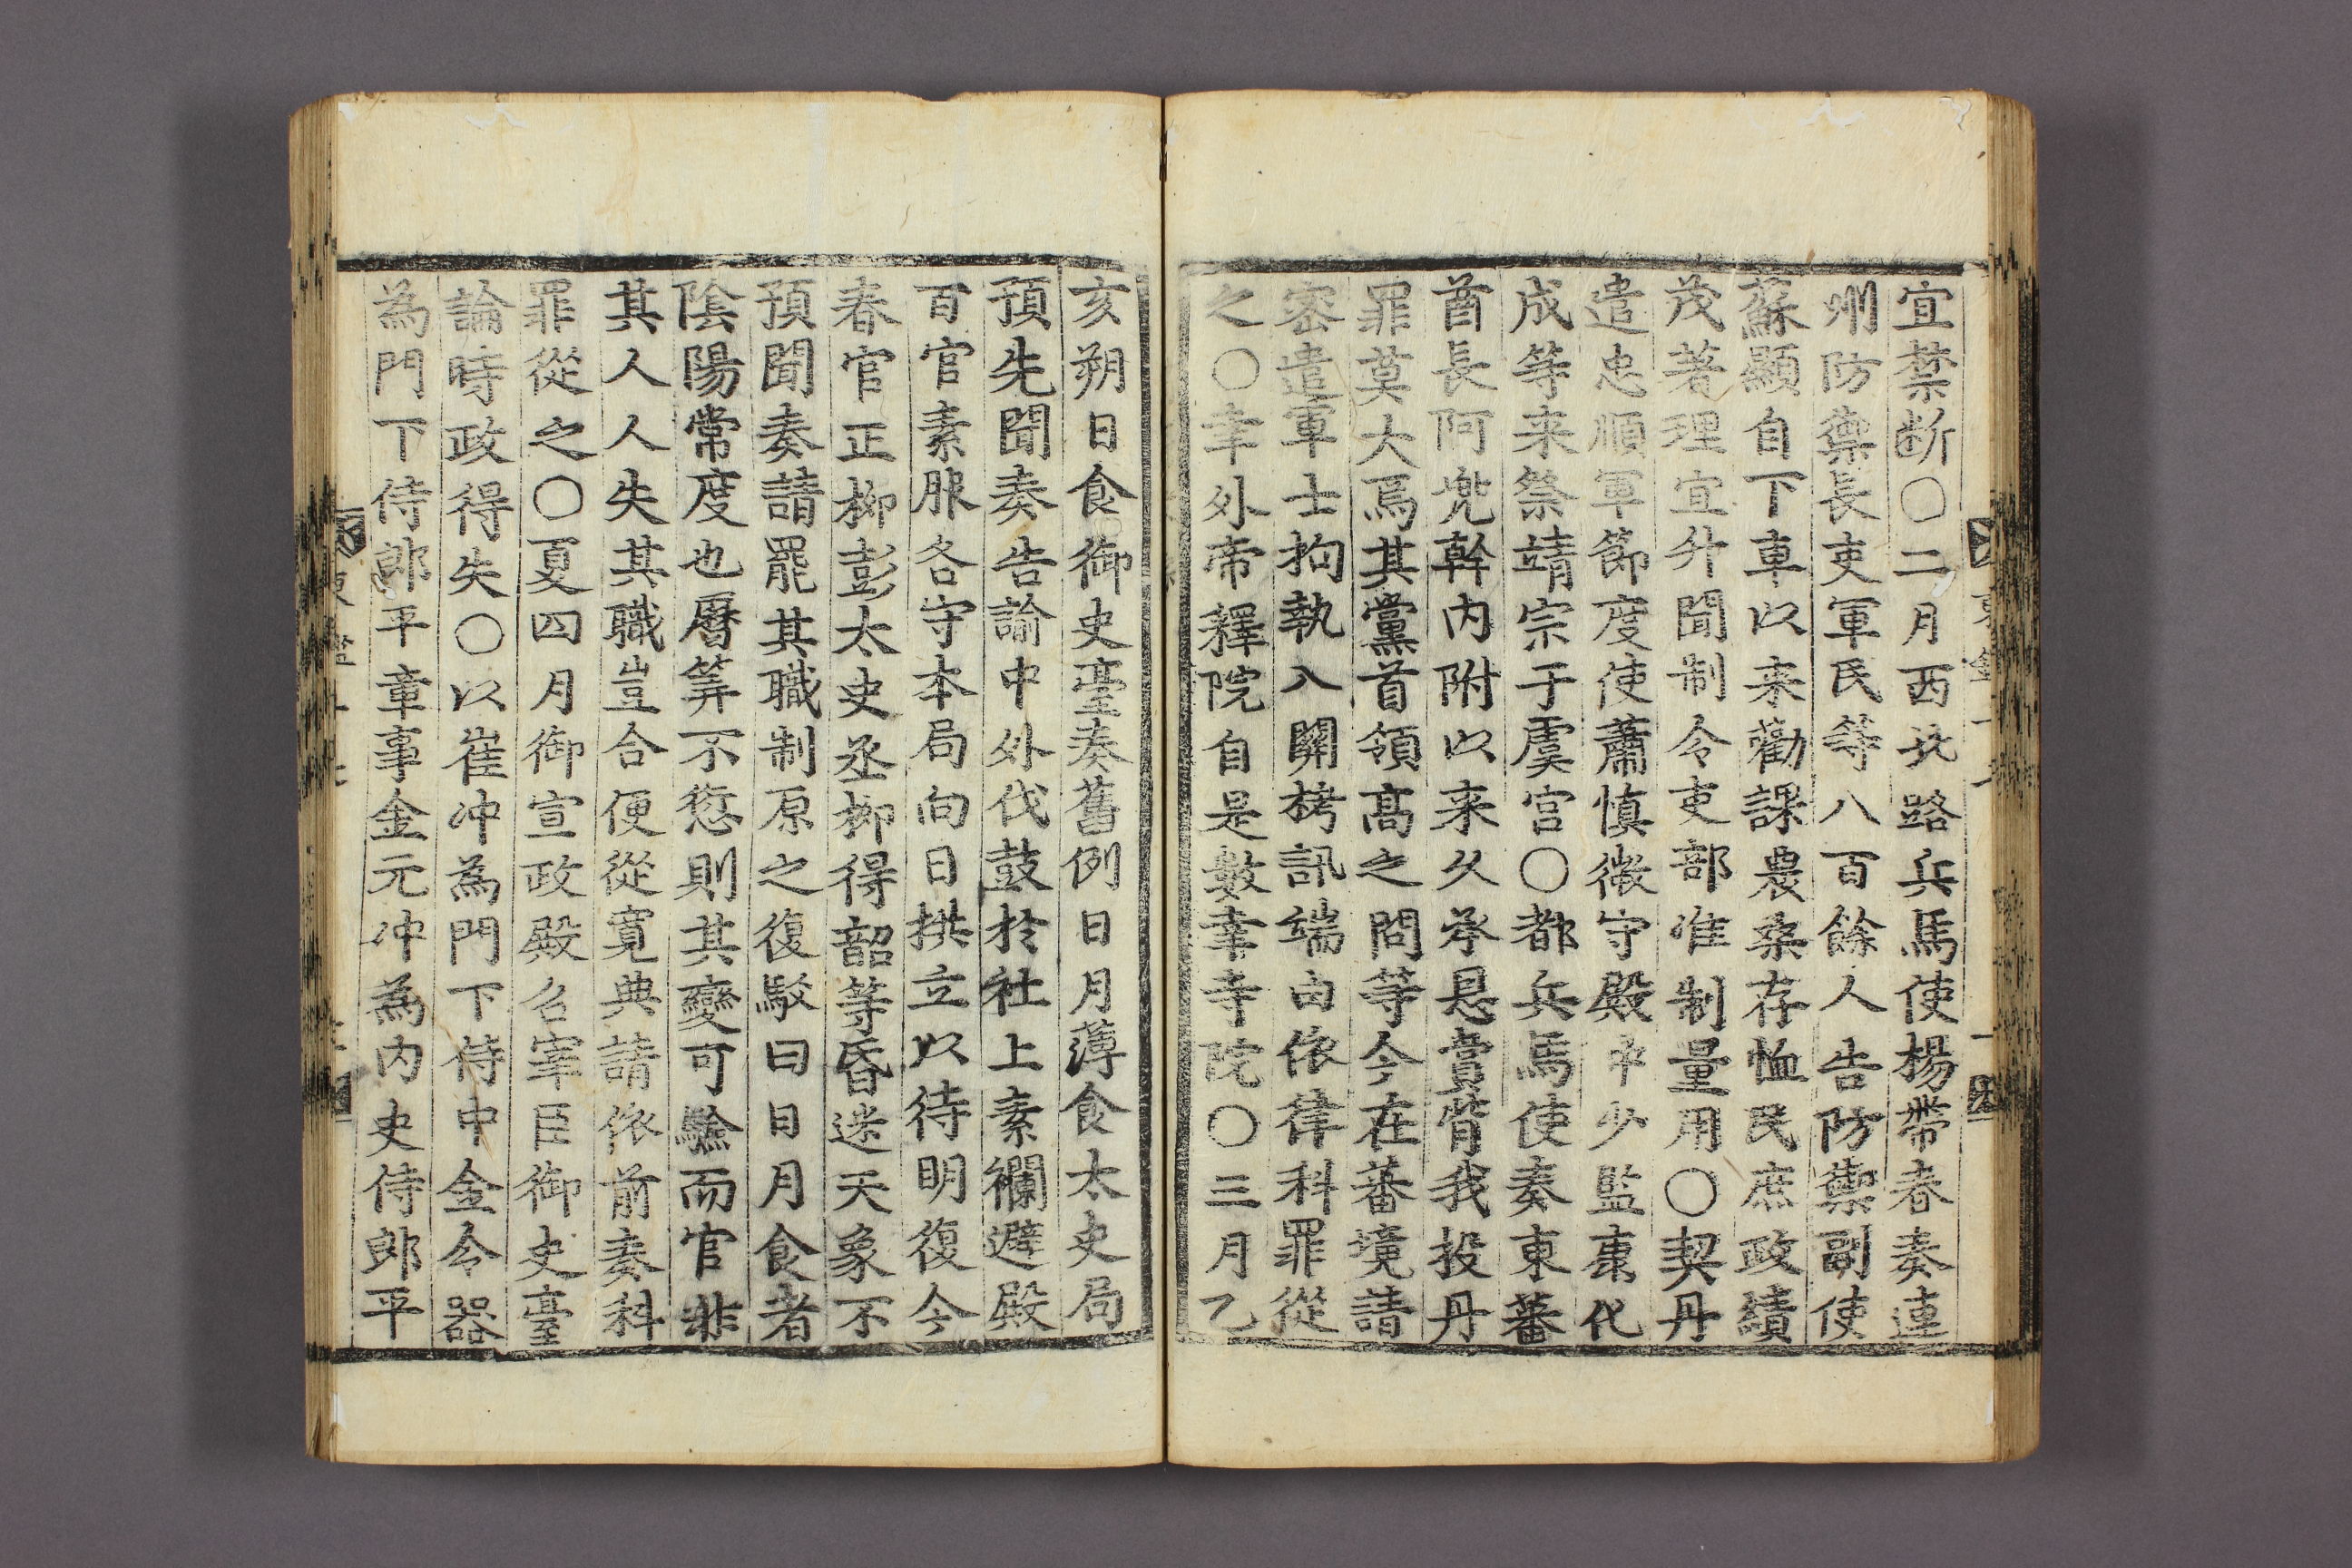 宜禁断○二月西北路兵馬使楊帶春奏連
州防禦長吏軍民等八百餘人告防禦副使
蘇顯自下車以来勸課農桑存恤民庶政績
茂著理宜升聞制令吏部准制量用○契丹
遣忠順軍節度使蕭慎微守殿中少監康化
成等来祭靖宗于虞宮○都兵馬使奏東蕃
酋長阿兠幹内附以来久承恩賞背我投丹
罪莫大焉其黨首領髙之問等今在蕃境請
密遣軍士拘執入関栲訊端由依律科罪從
之○幸外帝釋院自是數幸寺院○三月乙
亥朔日食御史臺奏舊例日月薄食太史局
預先聞奏告諭中外伐鼓於社上素襴避殿
百官素服各守本局向日拱立以待明復今
春官正柳彭太史丞柳得韶等昏迷天象不
預聞奏請罷其職制原之復駁曰日月食者
陰陽常度也曆筭不愆則其變可驗而官非
其人人失其職豈合便從寬典請依前奏科
罪從之○夏四月御宣政殿召宰臣御史臺
論時政得失○以崔冲為門下侍中金令器
為門下侍郎平章事金元冲為内史侍郎平